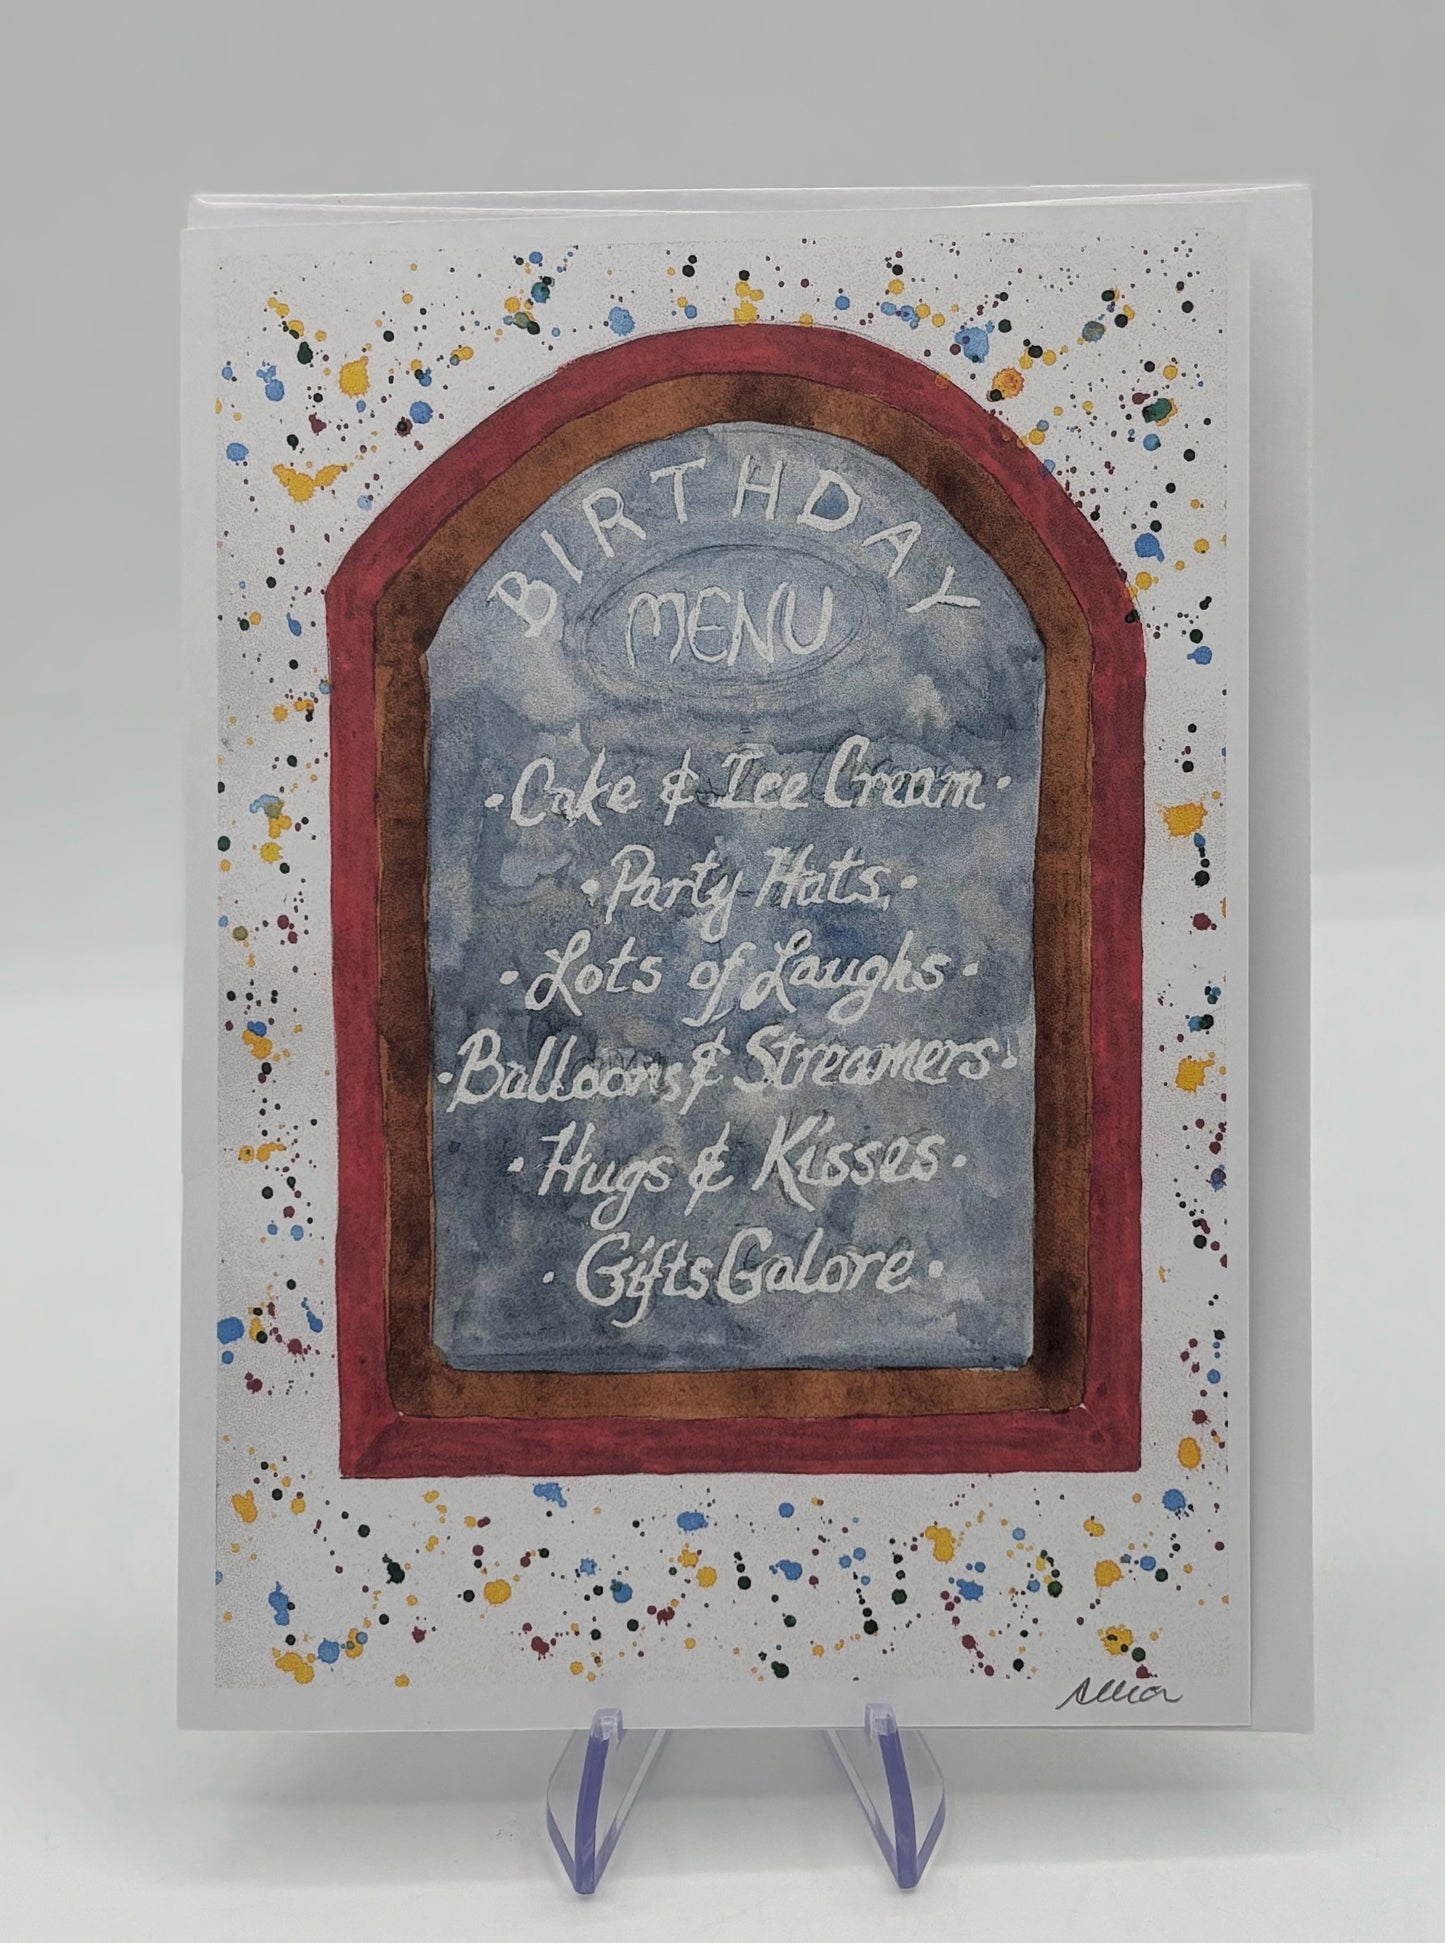 BIRTHDAY
MENU
·Cake & Ice Cream·
·Party Hats·
·Lots of Laughs·
·Balloons & Streamers·
·Hugs & Kisses·
·Gifts Galore·